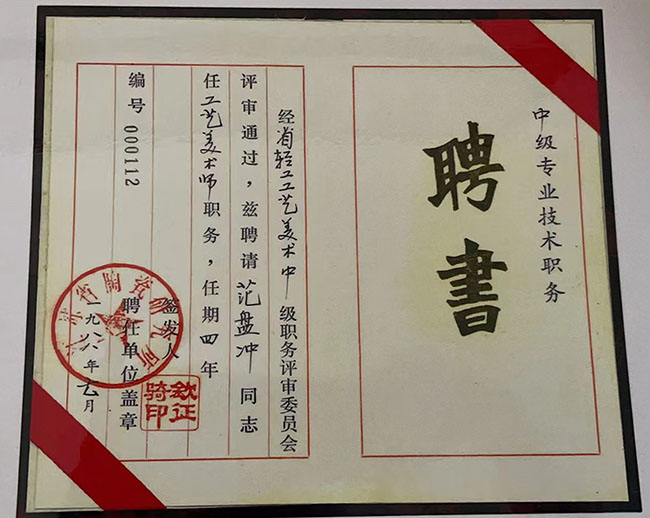 中级专业技术职务
聘書
经省轻工工艺美术中级职务评审委员会
评审通过，兹聘请范盘冲同志
任工艺美术师职务，任期四年
签发人
聘任单位盖章
一九八八年元月
编号 000112
省陶瓷研究所
钦证
骑印